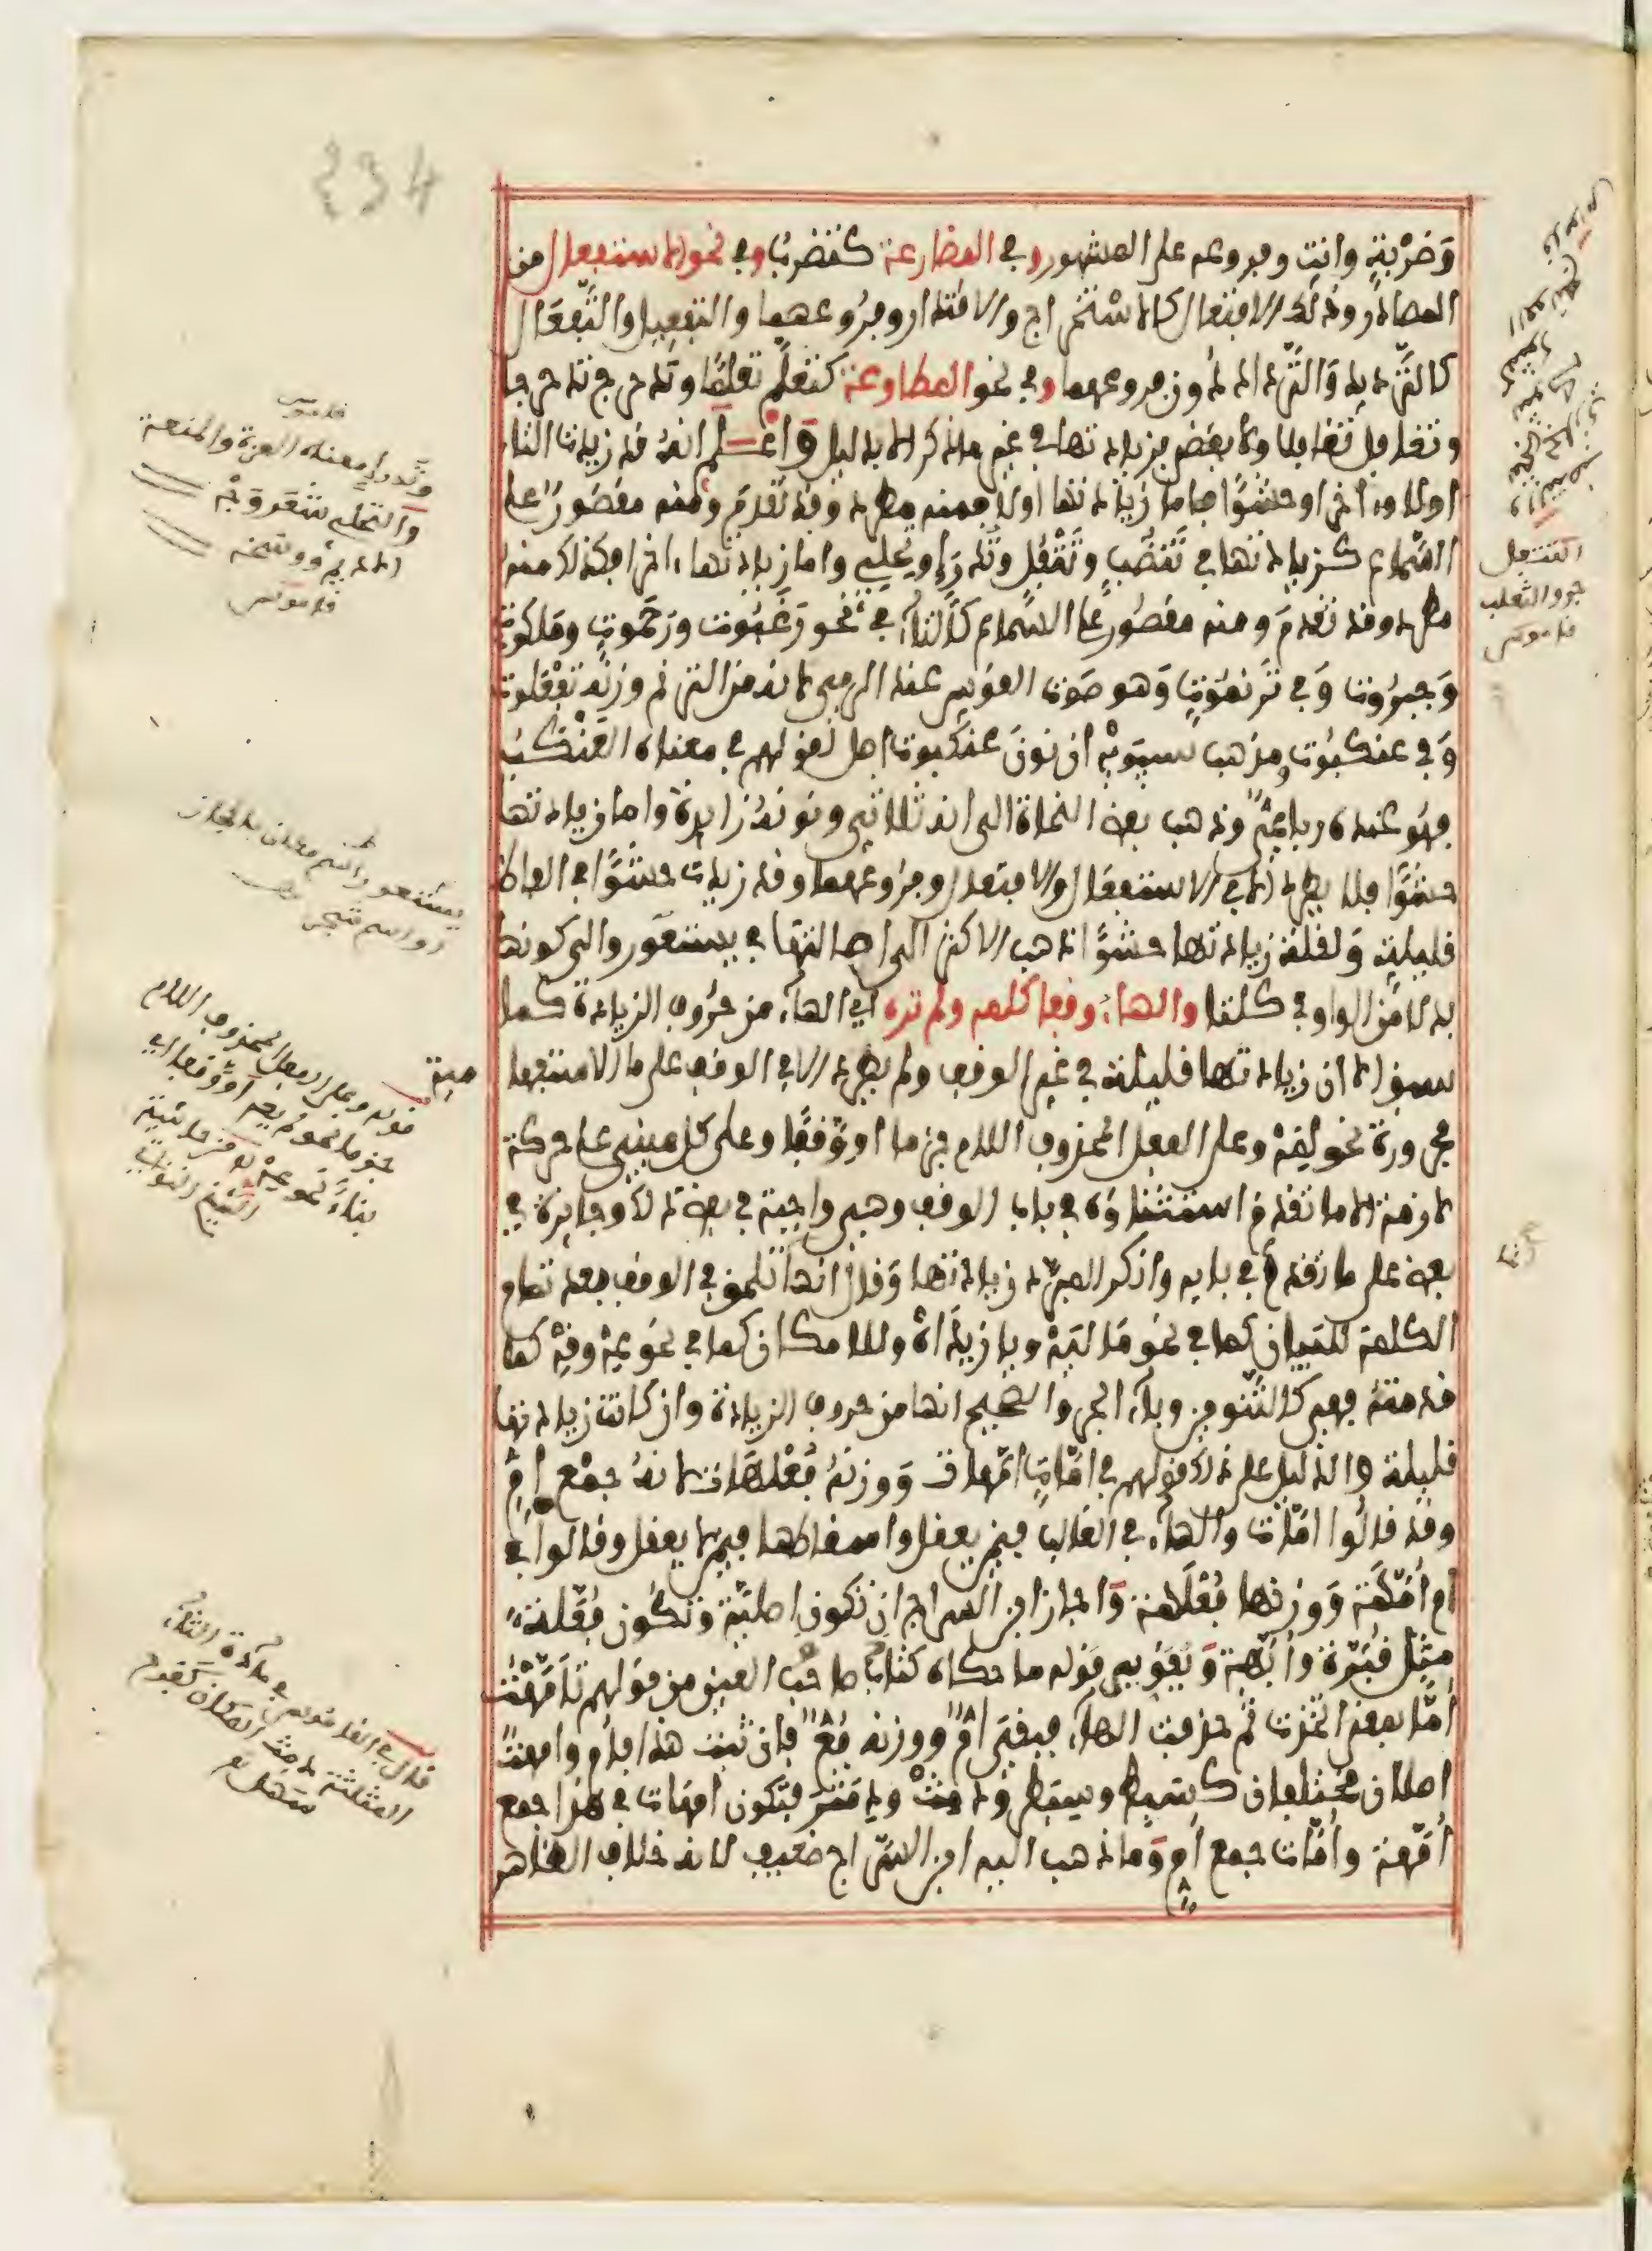 وَضَرْبَةٍ وانتِ وفروعه على المشهور وفي المضارعة كتضرب وفي نحو الاستفعال من
المصادر وذلك الافتعال كالاستخراج والاقتدار وفروعهما والتفعيل والتفعال
كالترديد والترداد دون فروعهما وفي نحو المطاوعة كتعلّم تعلّما وتدحرج تدحرجا
وتغافل تغافلا ولا يقضى بزيادتها في غير ما ذكر الا بدليل واعلم انه قد زيدت التاء
اولا وآخرا وحشوا فاما زيادتها اولا فمنه مطرد وقد تقدم ومنه مقصور على
السماع كزيادتها في تنضب وتتفل وتدرإ وتحلئ واما زيادتها آخرا فكذلك منه
مطرد وقد تقدم ومنه مقصور على السماع كالتاء في نحو رغبوت ورحموت وملكوت
وجبروت وفي ترنموت وهو صوت القوس عند الرمي لانه من الترنم وزنه تفعلوت
وفي عنكبوت ومذهب سيبويه ان نون عنكبوت اصل لقولهم في معناه العنكب
فهو عنده رباعي وذهب بعض النحاة الى انه ثلاثي ونونه زايدة واما زيادتها
حشوا فلا يطرد الا في الاستفعال والافتعال وفروعهما وقد زيدت حشوا في الفاظ
قليلة ولقلة زيادتها حشوا ذهب الاكثر الى اصالتها في يستعور والى كونها
بدلا من الواو في كلتا والهاء وقفا كلمه ولم تره اي الهاء من حروف الزيادة كما
سبق الا ان زيادتها قليلة في غير الوقف ولم يطرد الا في الوقف على ما الاستفهامية
مجرورة نحو لمه وعلى الفعل المحذوف اللام جزما او وقفا وعلى كل مبني على حركة
لازمة الا ما تقدم استثناؤه في باب الوقف وهي واجبة في بعض ذلك وجايزة في
بعض على ما تقدم في بابه وانكر المبرد زيادتها وقال انها تلحق في الوقف بعد تمام
الكلمة للبيان كما في نحو ماليه ويا زيداه وللامكان كما في نحو عه وقه كما
قدمته فهي كالتنوين وباء الجر والصحيح انها من حروف الزيادة وان كانت زيادتها
قليلة والدليل على ذلك قولهم في امّات امّهات ووزنه فعلهات لانه جمع ام
وقد قالوا امّات والهاء في الغالب فيمن يعقل واسقاطها فيما لا يعقل وقالوا في
ام امّهة ووزنها فعلهة واجاز ابن السراج ان تكون اصلية وتكون فعّلة
مثل قبّرة وابّهة ويقوي قوله ما حكاه كتاب صاحب العين من قولهم تامّهت
امّا بمعنى اتخذت ثم حذفت الهاء فبقي امّ ووزنه فعّ فان ثبت هذا فام وامهة
اصلان مختلفان كسبط وسبطر ودمث ودمثر فتكون امهات في هذا جمع
امّهة وامّات جمع ام وما ذهب اليه ابن السراج ضعيف لانه خلاف الظاهر
التتفل
جرو الثعلب
قاموس
قاموس
وتدرإ معناه العزة والمنعة
والتحلئ شعر وجه
الاديم ووسخه
قاموس
يستعور واسم مكان بالحجاز
او اسم شجر
قوله وعلى الفعل المحذوف اللام
جزما نحو لم يعه او وقفا اي
بناءً نحو عه من حاشية
الشيخ
قال في القاموس في مادة الثاء
المثلثة دمث المكان كفرح
سهل